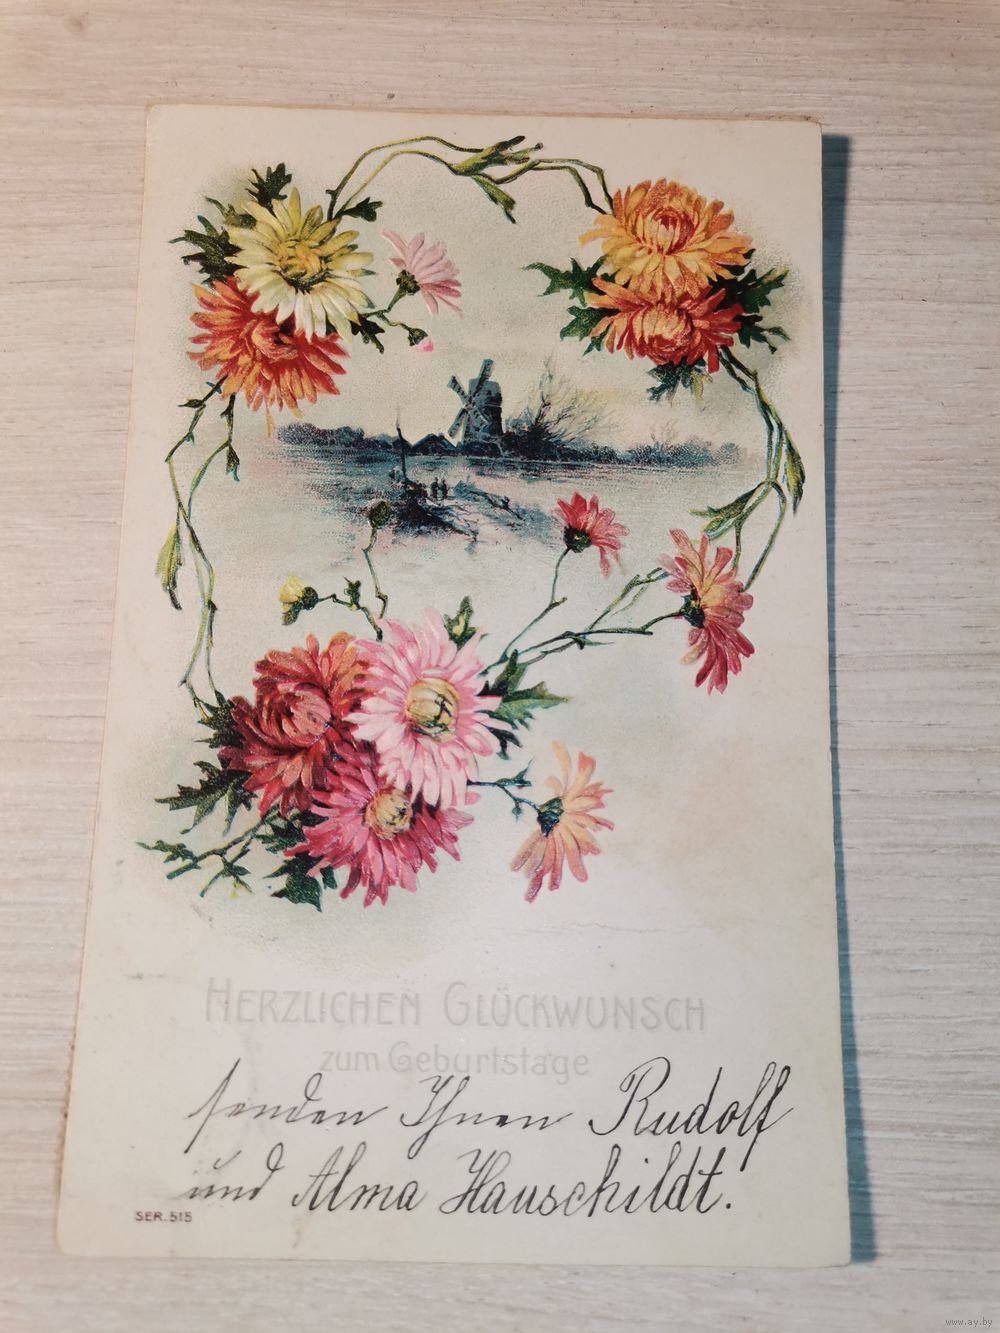 HERZLICHEN GLÜCKWUNSCH
zum Geburtstage
senden Ihnen Rudolf
und Alma Hauschildt.
SER. 515
www.ay.by